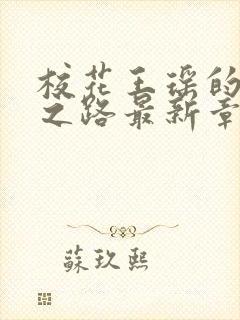 校花王瑶的
之路最新章
蘇玖熙